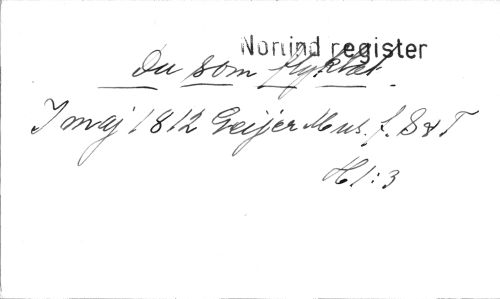 Norlind register
Du som flyktat
I maj 1812 Geijer Mus. f. S & T
H 1:3